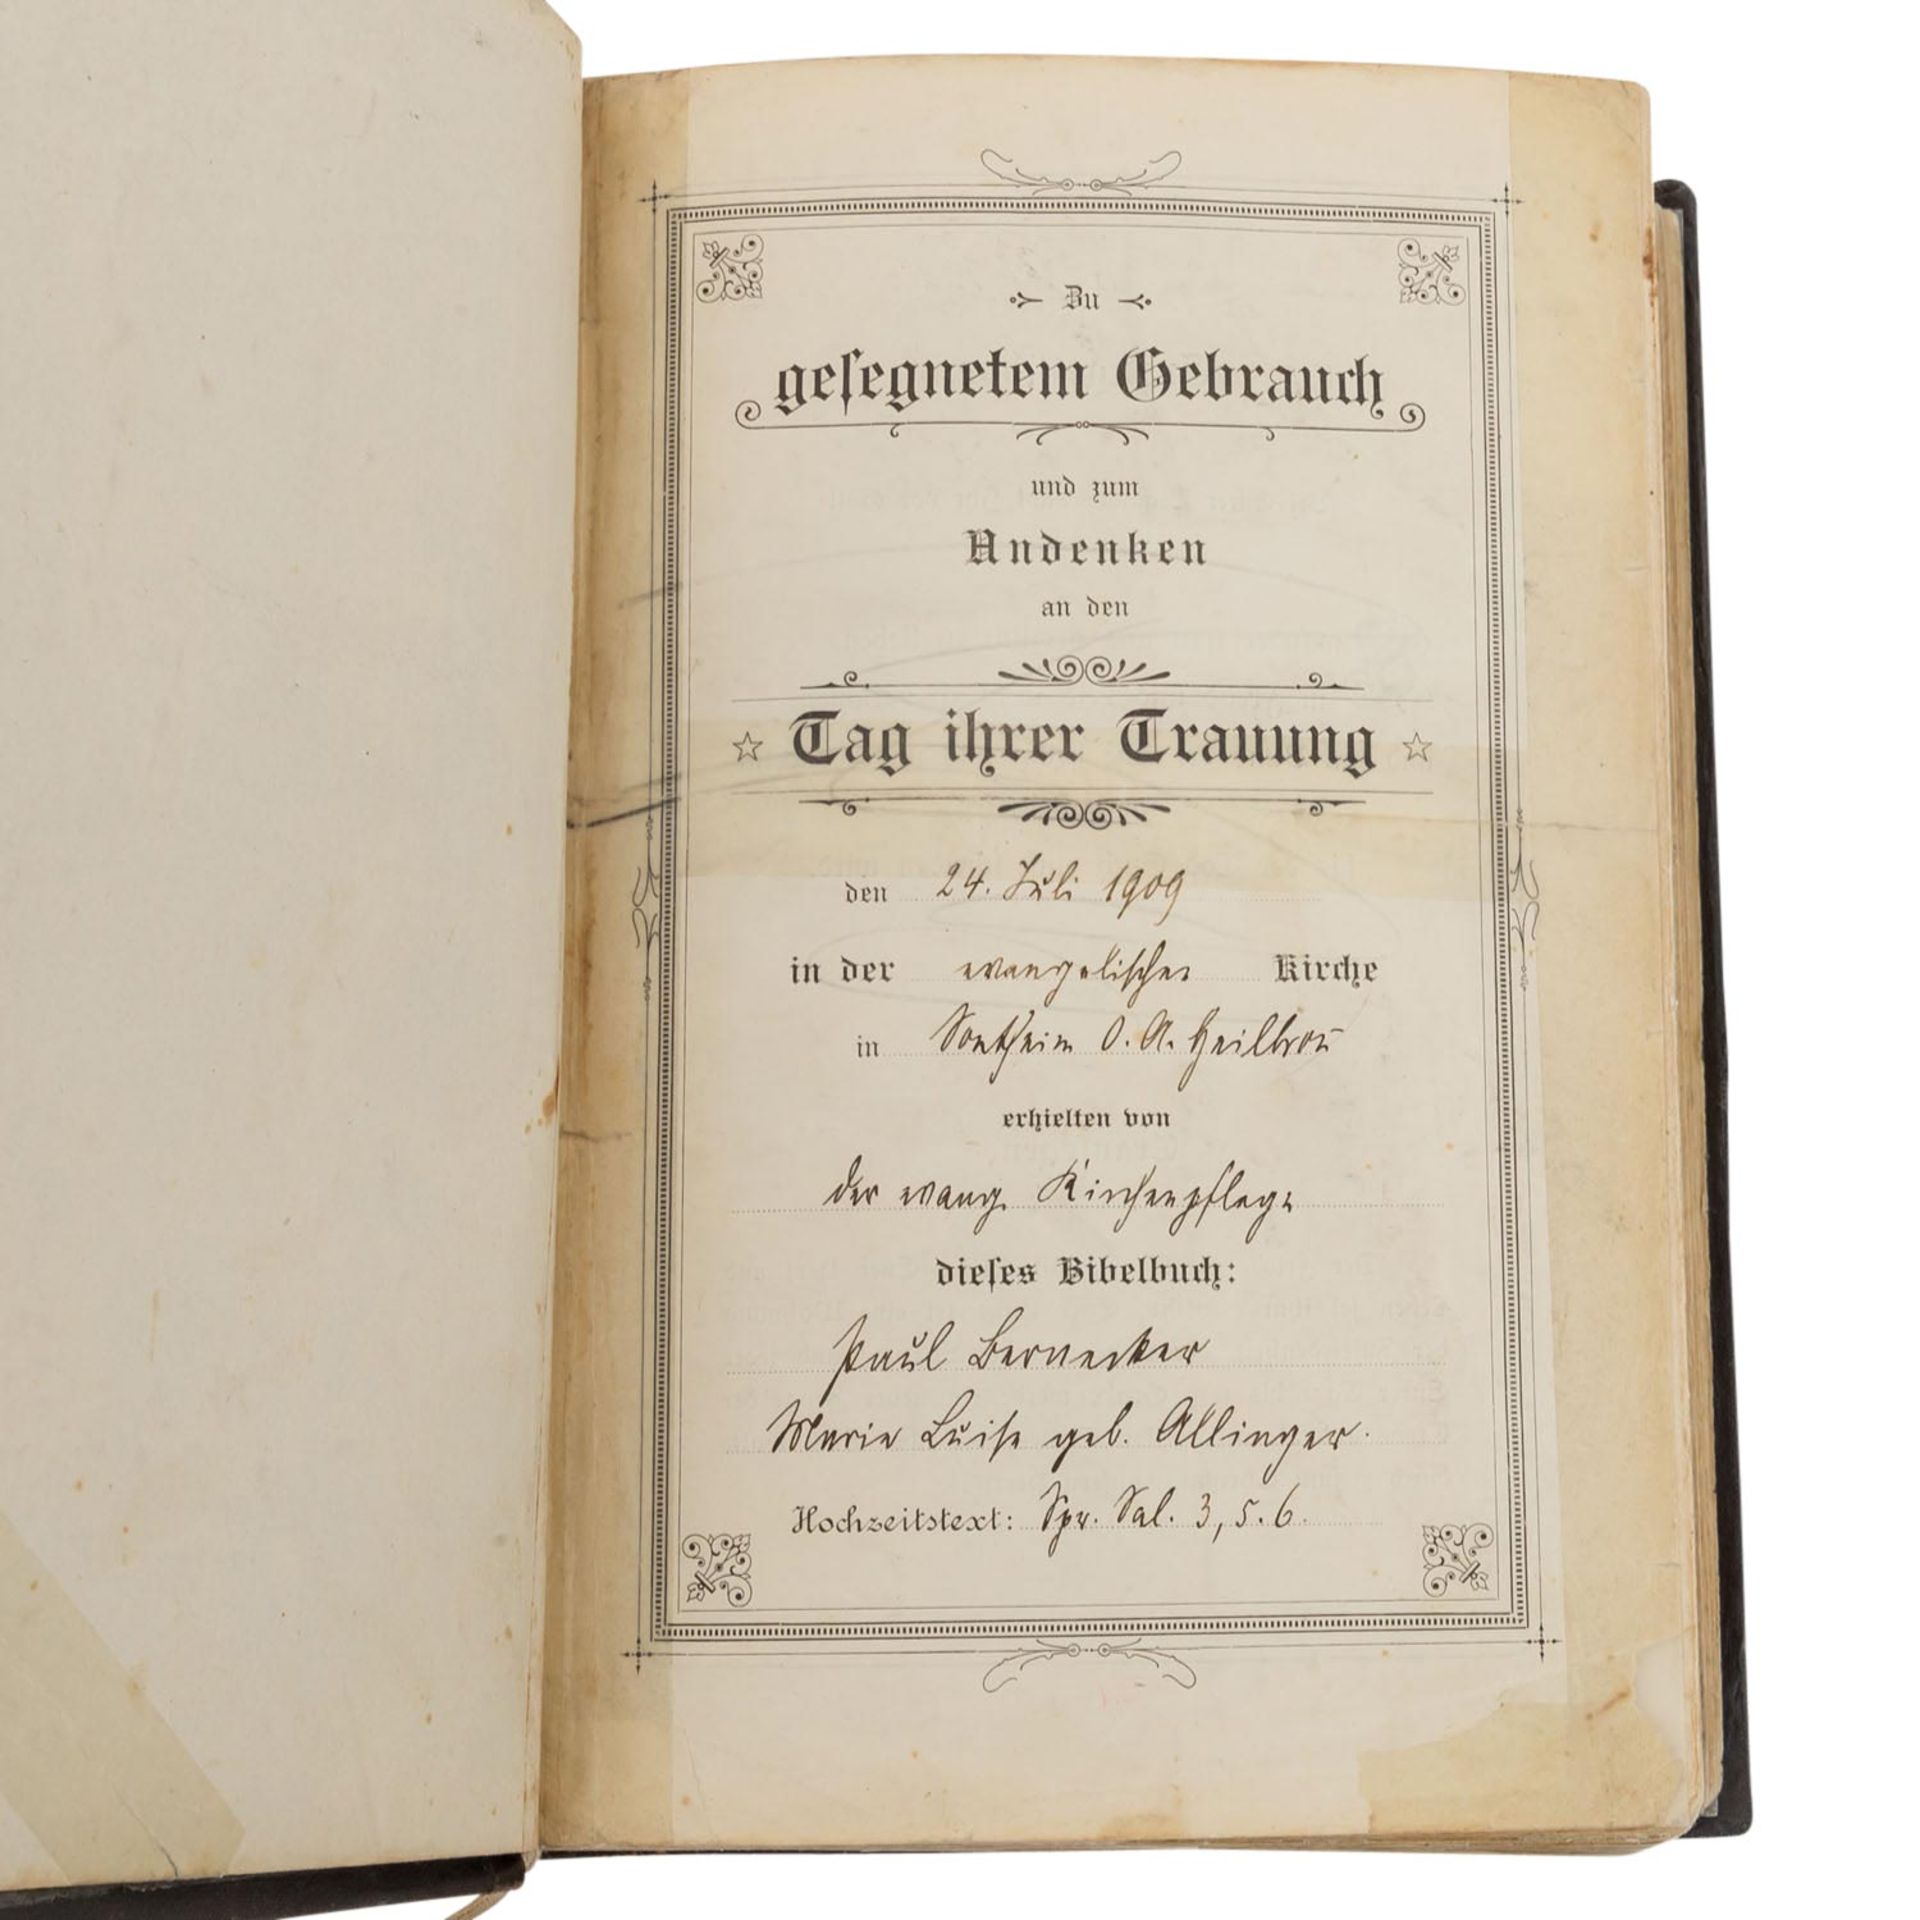 Zu
geſegnetem Gebrauch
und zum
Andenken
an den
Tag ihrer Trauung
den 24. Juli 1909
in der evangelischen Kirche
in Sontheim O. A. Heilbron̄
erhielten von
der evang. Kirchenpflege
dieſes Bibelbuch:
Paul Bernecker
Marie Luise geb. Allinger.
Hochzeitstext: Spr. Sal. 3, 5. 6.